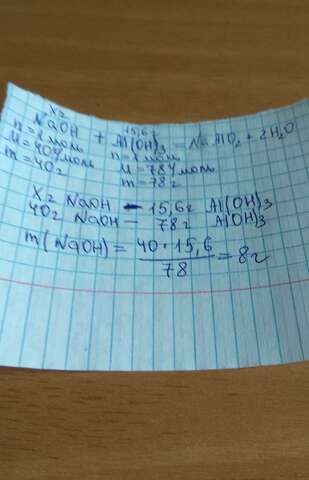 x г 15,6 г
NaOH + Al(OH)₃ = NaAlO₂ + 2H₂O
n = 1 моль n = 1 моль
M = 40 г/моль M = 78 г/моль
m = 40 г m = 78 г
x г NaOH – 15,6 г Al(OH)₃
40 г NaOH – 78 г Al(OH)₃
m(NaOH) = 40 · 15,6 / 78 = 8 г